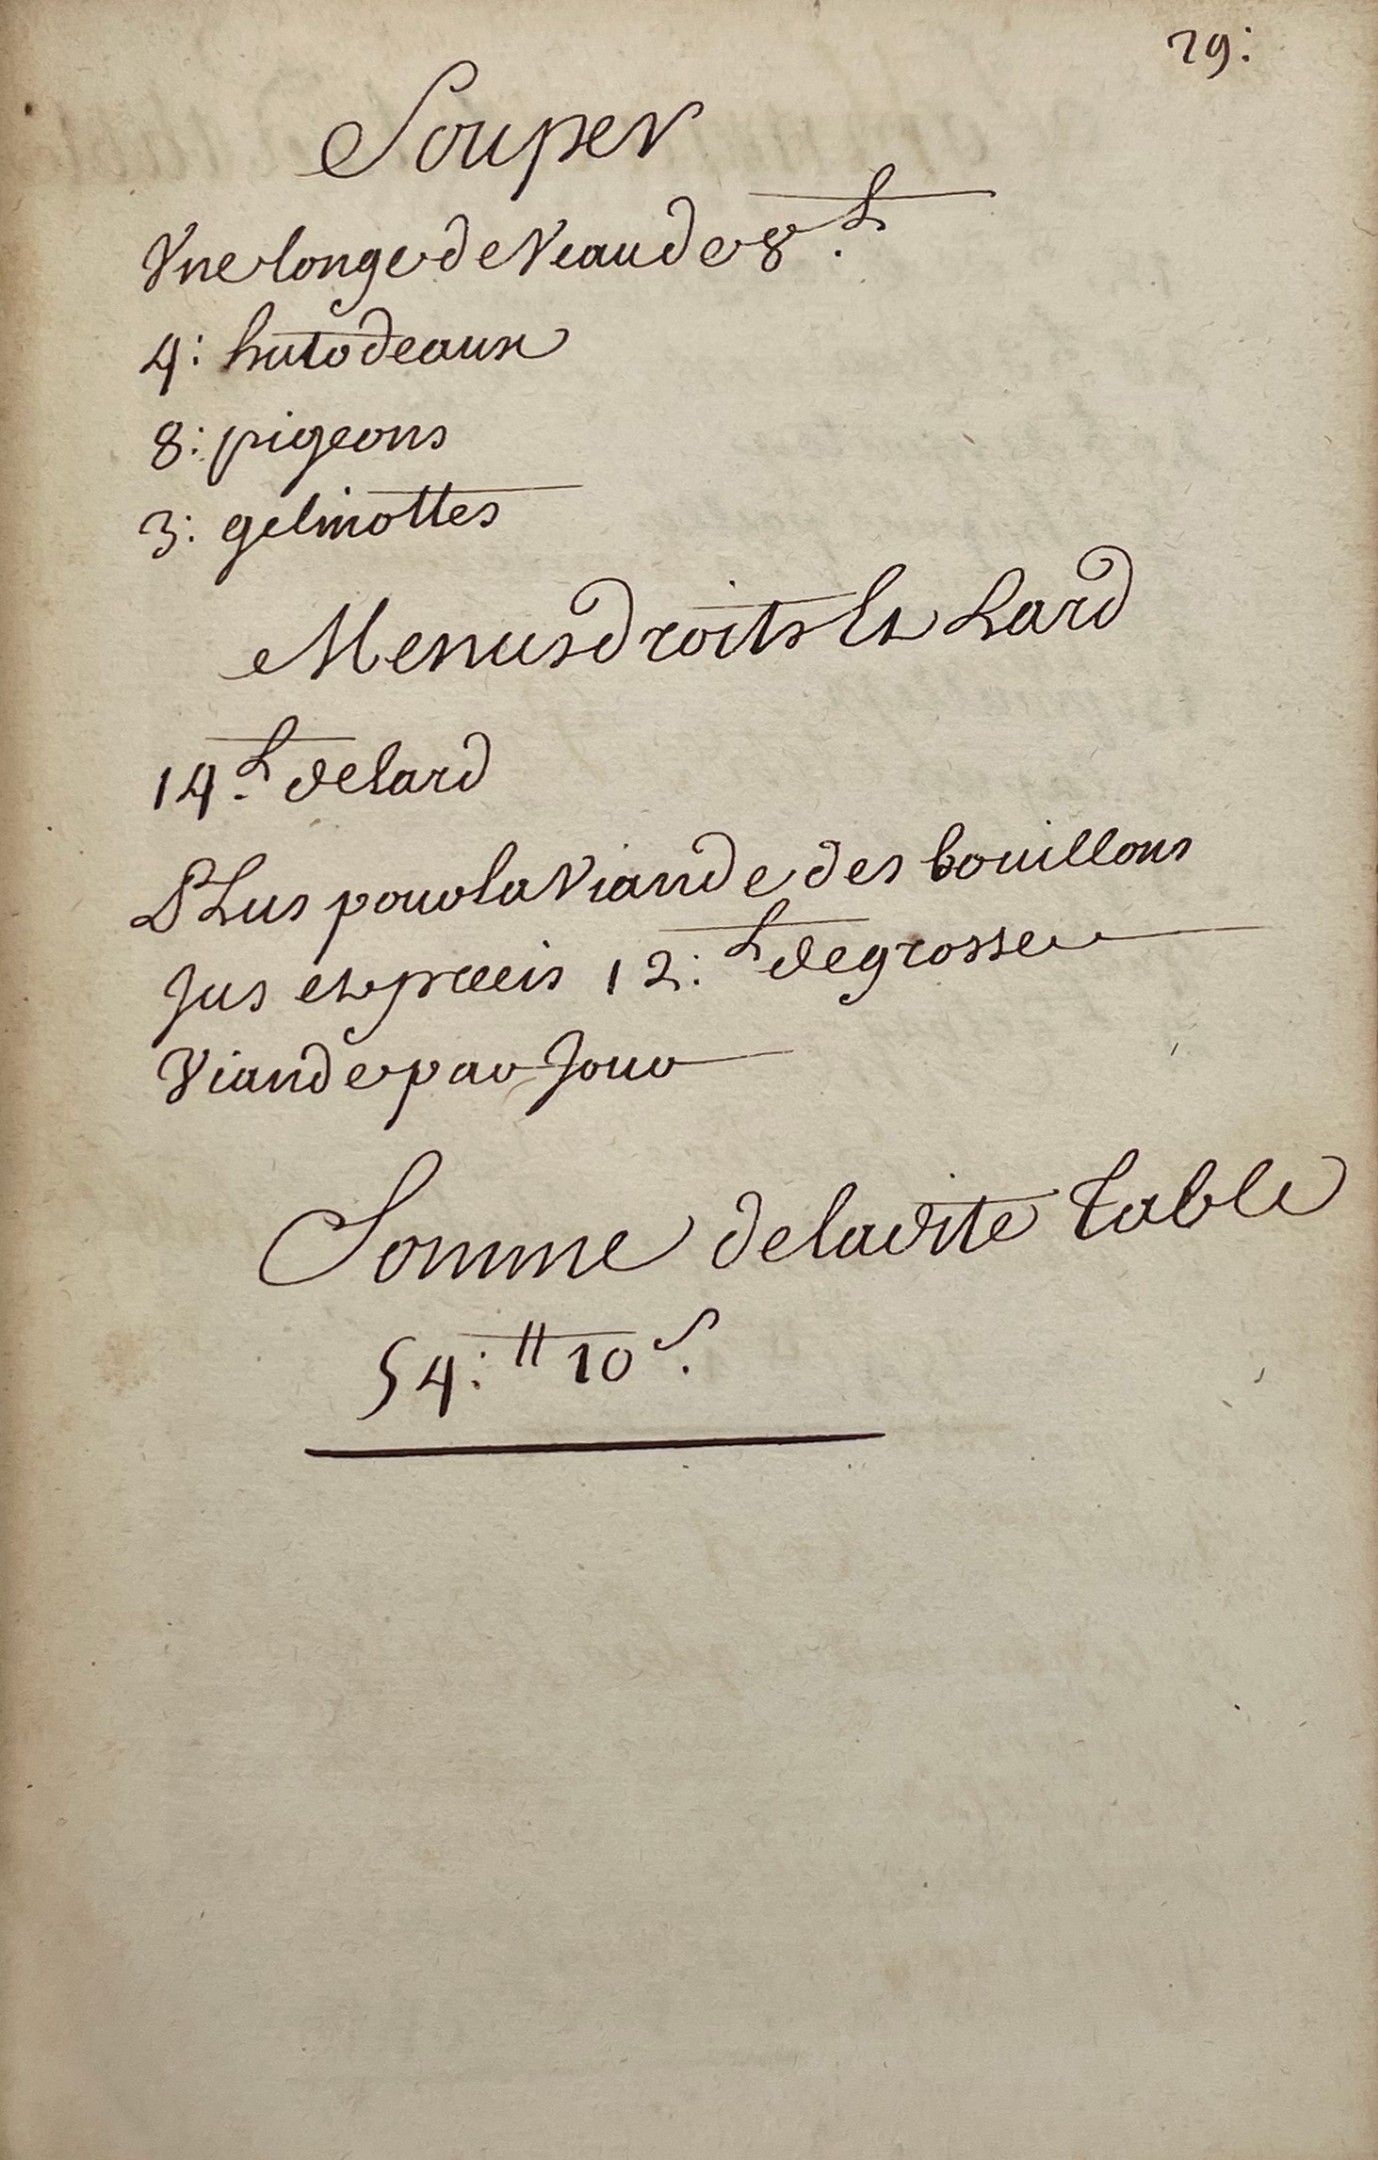 29:
Souper
Vne longe de Veau de 8.L
4: hutodeaux
8: pigeons
3: gelinottes
Menus droits Et Lard
14.L de lard
PLus pour la Viande des bouillons
Jus et precis 12:L de grosse
Viande par Jour
Somme de ladite table
54:tt 10 s.